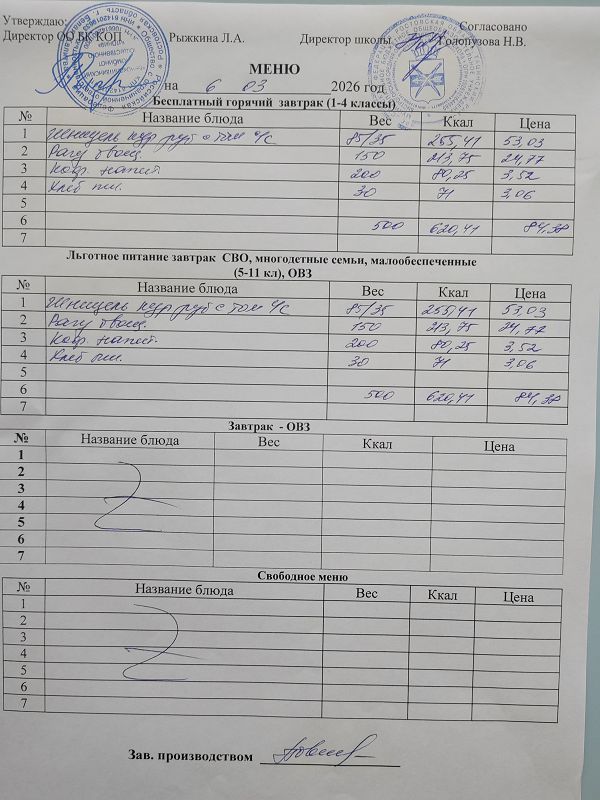 Утверждаю:
Согласовано
Директор ОО БК КОП Рыжкина Л.А. Директор школы Голопузова Н.В.
МЕНЮ
на 6 03 2026 год
Бесплатный горячий завтрак (1-4 классы)
№ Название блюда Вес Ккал Цена
1 Шницель кур руб с том ч/с 85/35 255,41 53,03
2 Рагу овощ. 150 213,75 24,77
3 Коф. напит. 200 80,25 3,52
4 Хлеб пш. 30 71 3,06
5
6 500 620,41 84,38
7
Льготное питание завтрак СВО, многодетные семьи, малообеспеченные
(5-11 кл), ОВЗ
№ Название блюда Вес Ккал Цена
1 Шницель кур руб с том ч/с 85/35 255,41 53,03
2 Рагу овощ. 150 213,75 24,77
3 Коф. напит. 200 80,25 3,52
4 Хлеб пш. 30 71 3,06
5
6 500 620,41 84,38
7
Завтрак - ОВЗ
№ Название блюда Вес Ккал Цена
1
2
3
4
5
6
7
Свободное меню
№ Название блюда Вес Ккал Цена
1
2
3
4
5
6
7
Зав. производством